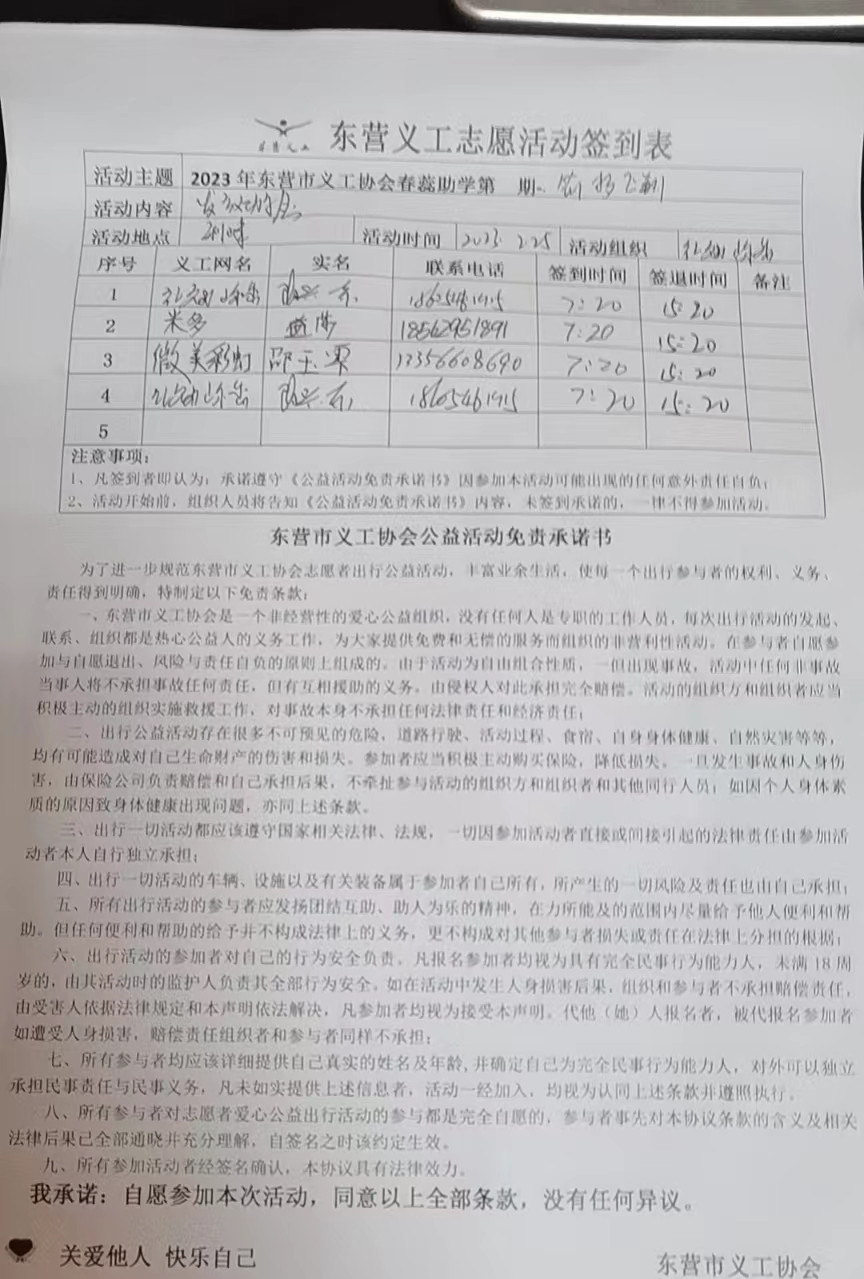 东营义工志愿活动签到表
活动主题 2023年东营市义工协会春蕊助学第 期-
活动内容
活动地点 利津 活动时间 2023.2.25 活动组织
序号 义工网名 实名 联系电话 签到时间 签退时间 备注
1 18605461915 7:20 15:20
2 米多 18562951891 7:20 15:20
3 微美彩虹 邵玉 13356608690 7:20 15:20
4 18605461915 7:20 15:20
5
注意事项：
1、凡签到者即认为：承诺遵守《公益活动免责承诺书》因参加本活动可能出现的任何意外责任自负；
2、活动开始前，组织人员将告知《公益活动免责承诺书》内容，未签到承诺的，一律不得参加活动。
东营市义工协会公益活动免责承诺书
为了进一步规范东营市义工协会志愿者出行公益活动，丰富业余生活，使每一个出行参与者的权利、义务、
责任得到明确，特制定以下免责条款：
一、东营市义工协会是一个非经营性的爱心公益组织，没有任何人是专职的工作人员，每次出行活动的发起、
联系、组织都是热心公益人的义务工作，为大家提供免费和无偿的服务而组织的非营利性活动。在参与者自愿参
加与自愿退出、风险与责任自负的原则上组成的。由于活动为自由组合性质，一但出现事故，活动中任何非事故
当事人将不承担事故任何责任，但有互相援助的义务。由侵权人对此承担完全赔偿。活动的组织方和组织者应当
积极主动的组织实施救援工作，对事故本身不承担任何法律责任和经济责任；
二、出行公益活动存在很多不可预见的危险，道路行驶、活动过程、食宿、自身身体健康、自然灾害等等，
均有可能造成对自己生命财产的伤害和损失。参加者应当积极主动购买保险，降低损失。一旦发生事故和人身伤
害，由保险公司负责赔偿和自己承担后果，不牵扯参与活动的组织方和组织者和其他同行人员；如因个人身体素
质的原因致身体健康出现问题，亦同上述条款。
三、出行一切活动都应该遵守国家相关法律、法规，一切因参加活动者直接或间接引起的法律责任由参加活
动者本人自行独立承担；
四、出行一切活动的车辆、设施以及有关装备属于参加者自己所有，所产生的一切风险及责任也由自己承担；
五、所有出行活动的参与者应发扬团结互助、助人为乐的精神，在力所能及的范围内尽量给予他人便利和帮
助。但任何便利和帮助的给予并不构成法律上的义务，更不构成对其他参与者损失或责任在法律上分担的根据；
六、出行活动的参加者对自己的行为安全负责。凡报名参加者均视为具有完全民事行为能力人，未满18周
岁的，由其活动时的监护人负责其全部行为安全。如在活动中发生人身损害后果，组织和参与者不承担赔偿责任，
由受害人依据法律规定和本声明依法解决，凡参加者均视为接受本声明。代他（她）人报名者，被代报名参加者
如遭受人身损害，赔偿责任组织者和参与者同样不承担；
七、所有参与者均应该详细提供自己真实的姓名及年龄，并确定自己为完全民事行为能力人，对外可以独立
承担民事责任与民事义务，凡未如实提供上述信息者，活动一经加入，均视为认同上述条款并遵照执行。
八、所有参与者对志愿者爱心公益出行活动的参与都是完全自愿的，参与者事先对本协议条款的含义及相关
法律后果已全部通晓并充分理解，自签名之时该约定生效。
九、所有参加活动者经签名确认，本协议具有法律效力。
我承诺：自愿参加本次活动，同意以上全部条款，没有任何异议。
关爱他人 快乐自己
东营市义工协会